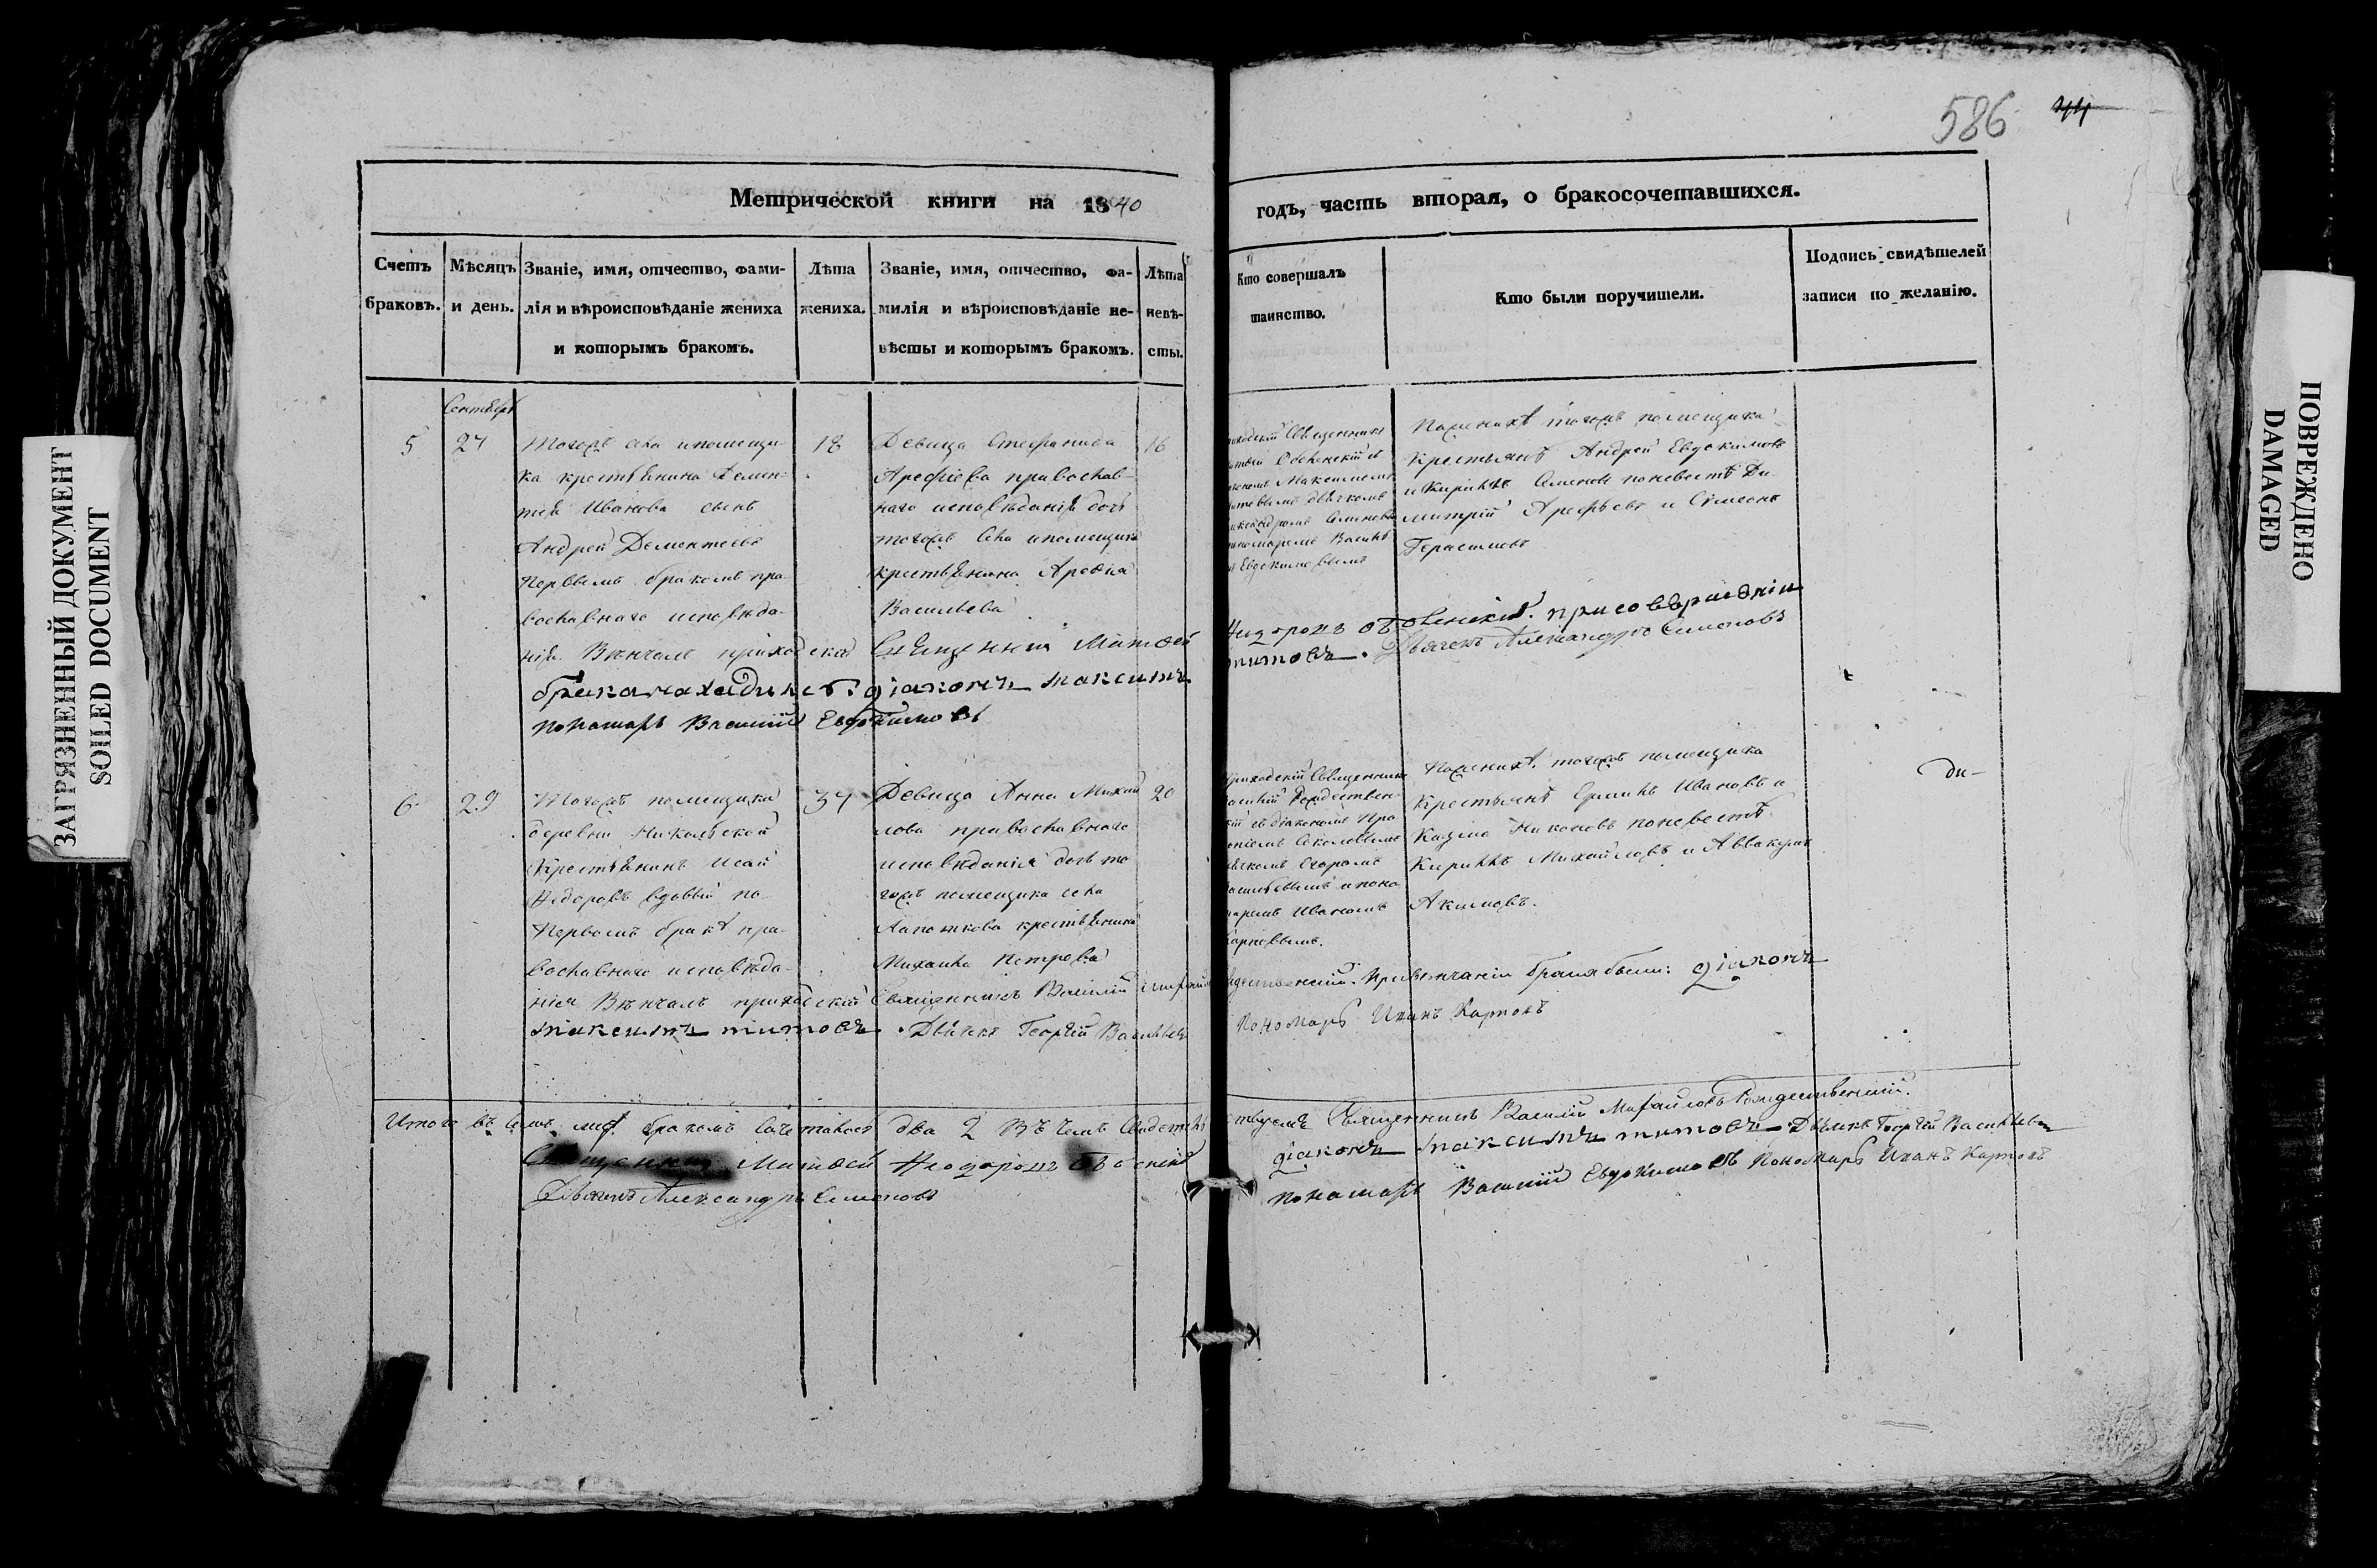 586 44
Метрической книги на 1840
годъ, часть вторая, о бракосочетавшихся.
Счетъ браковъ.
Мѣсяцъ и день.
Званіе, имя, отчество, фами-
лія и вѣроисповѣданіе жениха
и которымъ бракомъ.
Лѣта
жениха.
Званіе, имя, отчество, фа-
милія и вѣроисповѣданіе не-
вѣсты и которымъ бракомъ.
Лѣта
невѣ-
сты.
Кто совершалъ
таинство.
Кто были поручители.
Подпись свидѣтелей
записи по желанію.
Сентябрь
5
27
Тогожъ села и помещи-
ка крестьянина Демен-
тія Иванова сынъ
Андрей Дементьевъ
первымъ бракомъ пра-
вославнаго исповѣда-
нія
18
Девица Стефанида
Арефіева православ-
наго исповѣданія дочь
тогожъ села и помещика
крестьянина Арефіа
Васильева
16
Священникъ
Максимомъ
дьячкомъ
Семеновы
Евдокимовымъ
Пожениху тогожъ помещика
крестьянѣ Андрей Евдокимовъ
и Кирилъ Семеновъ поневесте Ди-
митрій Арефьевъ и Сѵмеонъ
Герасимовъ
Вѣнчалъ приходскій Священникъ Матѳей
присовершеніи
брака находился: діаконъ Максимъ
титовъ. Дьячекъ Александръ Семеновъ
пономарь Василій Евдокимовъ
6
29
Тогожъ помещика
деревни Никольской
Крестьянинъ Исай
Федоровъ вдовый по
первомъ бракѣ пра-
вославнаго исповѣда-
нія
Девица Анна Михай
лова православнаго
исповѣданія дочь то
гожъ помещика села
крестьянина
Михаила Петрова
20
Приходскій Священникъ
Рождествен-
съ діакономъ Про
Соколовымъ
Егоромъ
и поно
Иваномъ
Карповымъ.
Пожениху тогожъ помещика
Крестьянѣ Ивановъ и
Казма Никоновъ поневестѣ
Кирилъ Михайловъ и Аввакумъ
Акимовъ.
ди-
Вѣнчалъ приходскій Священникъ Василій
Привенчаніи брака были: діаконъ
Максимъ титовъ. Дьячекъ Георгій Васильевъ
Пономарь Иванъ Карповъ
Итого въ семъ бракомъ сочетавшихся два 2 Въ чемъ свидетель
ствуемъ Священникъ Василій Михайловъ Рождественскій.
Матѳей
діаконъ Максимъ титовъ. Дьячекъ Георгій Васильевъ
Дьячекъ Александръ Семеновъ
пономарь Василій Евдокимовъ Пономарь Иванъ Карповъ
ЗАГРЯЗНЕННЫЙ ДОКУМЕНТ
SOILED DOCUMENT
ПОВРЕЖДЕНО
DAMAGED